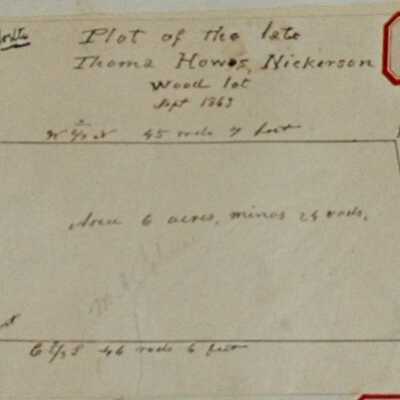 Plot of the late
Thoma Howes Nickerson
Wood lot
Sept 1863
45 rods 7 feet
Area 6 acres, minos 24 rods,
46 rods 6 feet